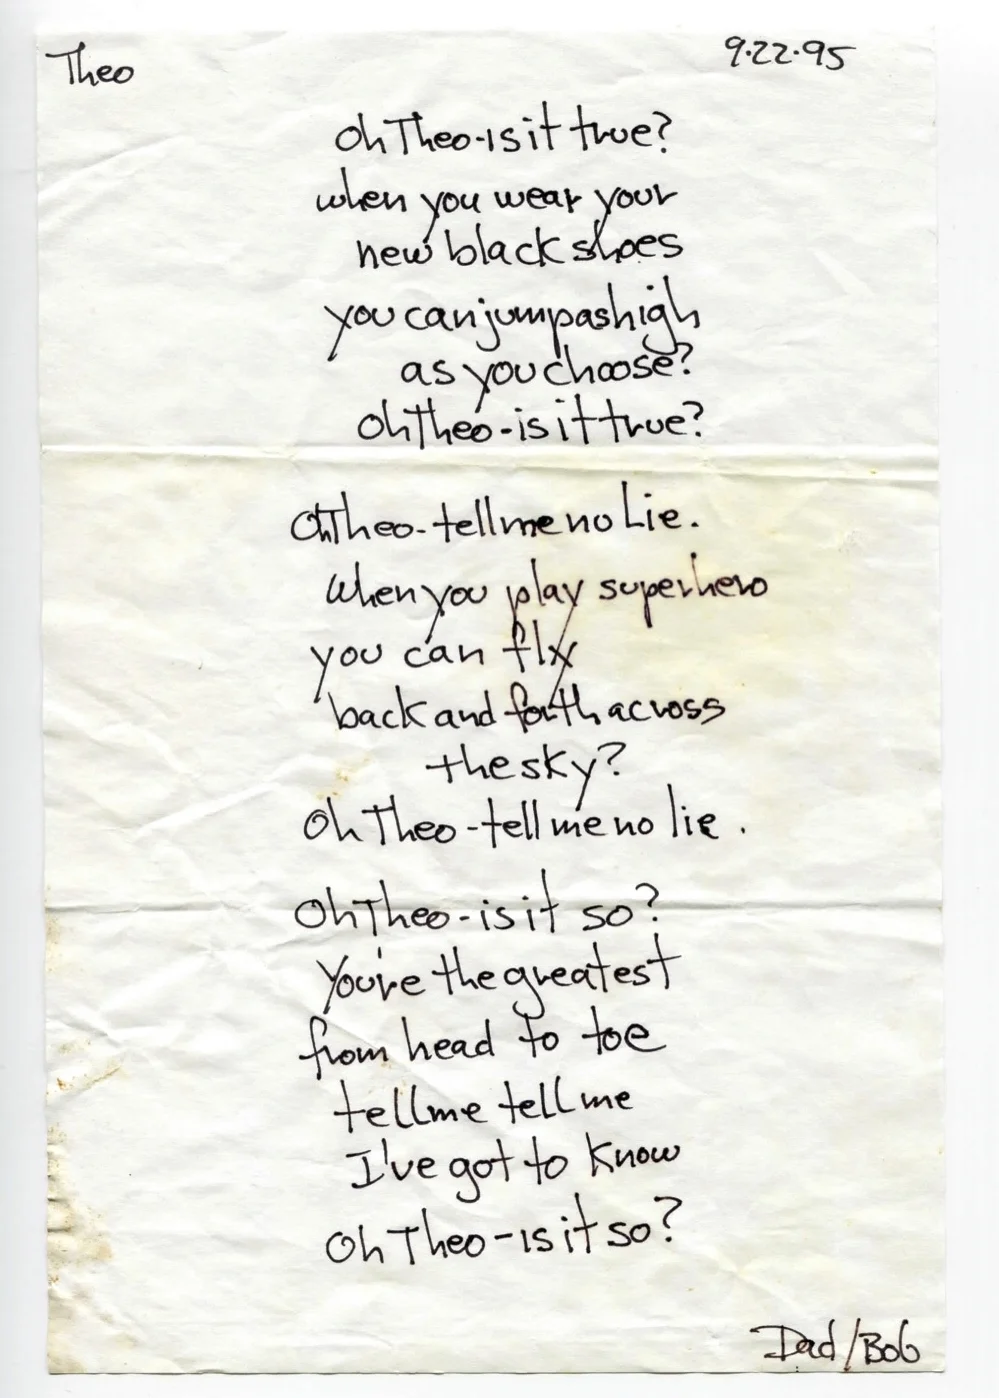 Theo
9.22.95
Oh Theo-is it true?
when you wear your
new black shoes
you can jump as high
as you choose?
Oh Theo-is it true?
Oh Theo-tell me no Lie.
When you play superhero
you can fly
back and forth across
the sky?
Oh Theo-tell me no lie.
Oh Theo-is it so?
You're the greatest
from head to toe
tell me tell me
I've got to know
Oh Theo-is it so?
Dad/Bob